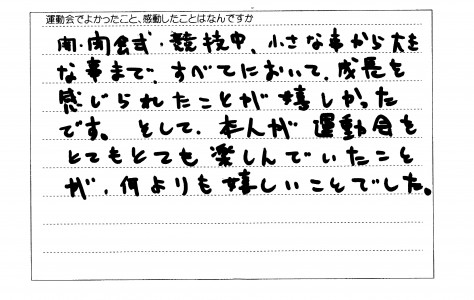 運動会でよかったこと、感動したことはなんですか
開・閉会式・競技中、小さな事から大き
な事まで、すべてにおいて、成長を
感じられたことが嬉しかった
です。そして、本人が運動会を
とてもとても楽しんでいたこと
が、何よりも嬉しいことでした。